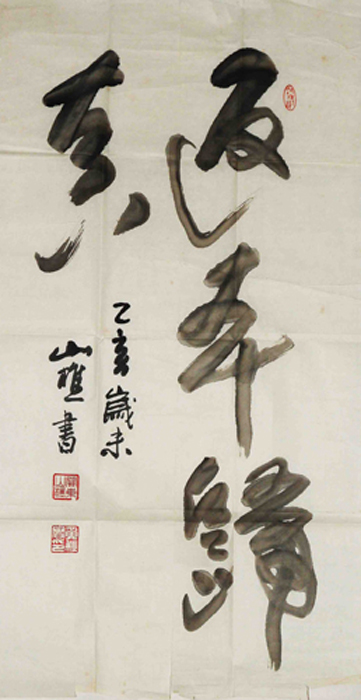 返本歸
真
乙亥歲末
山樵書